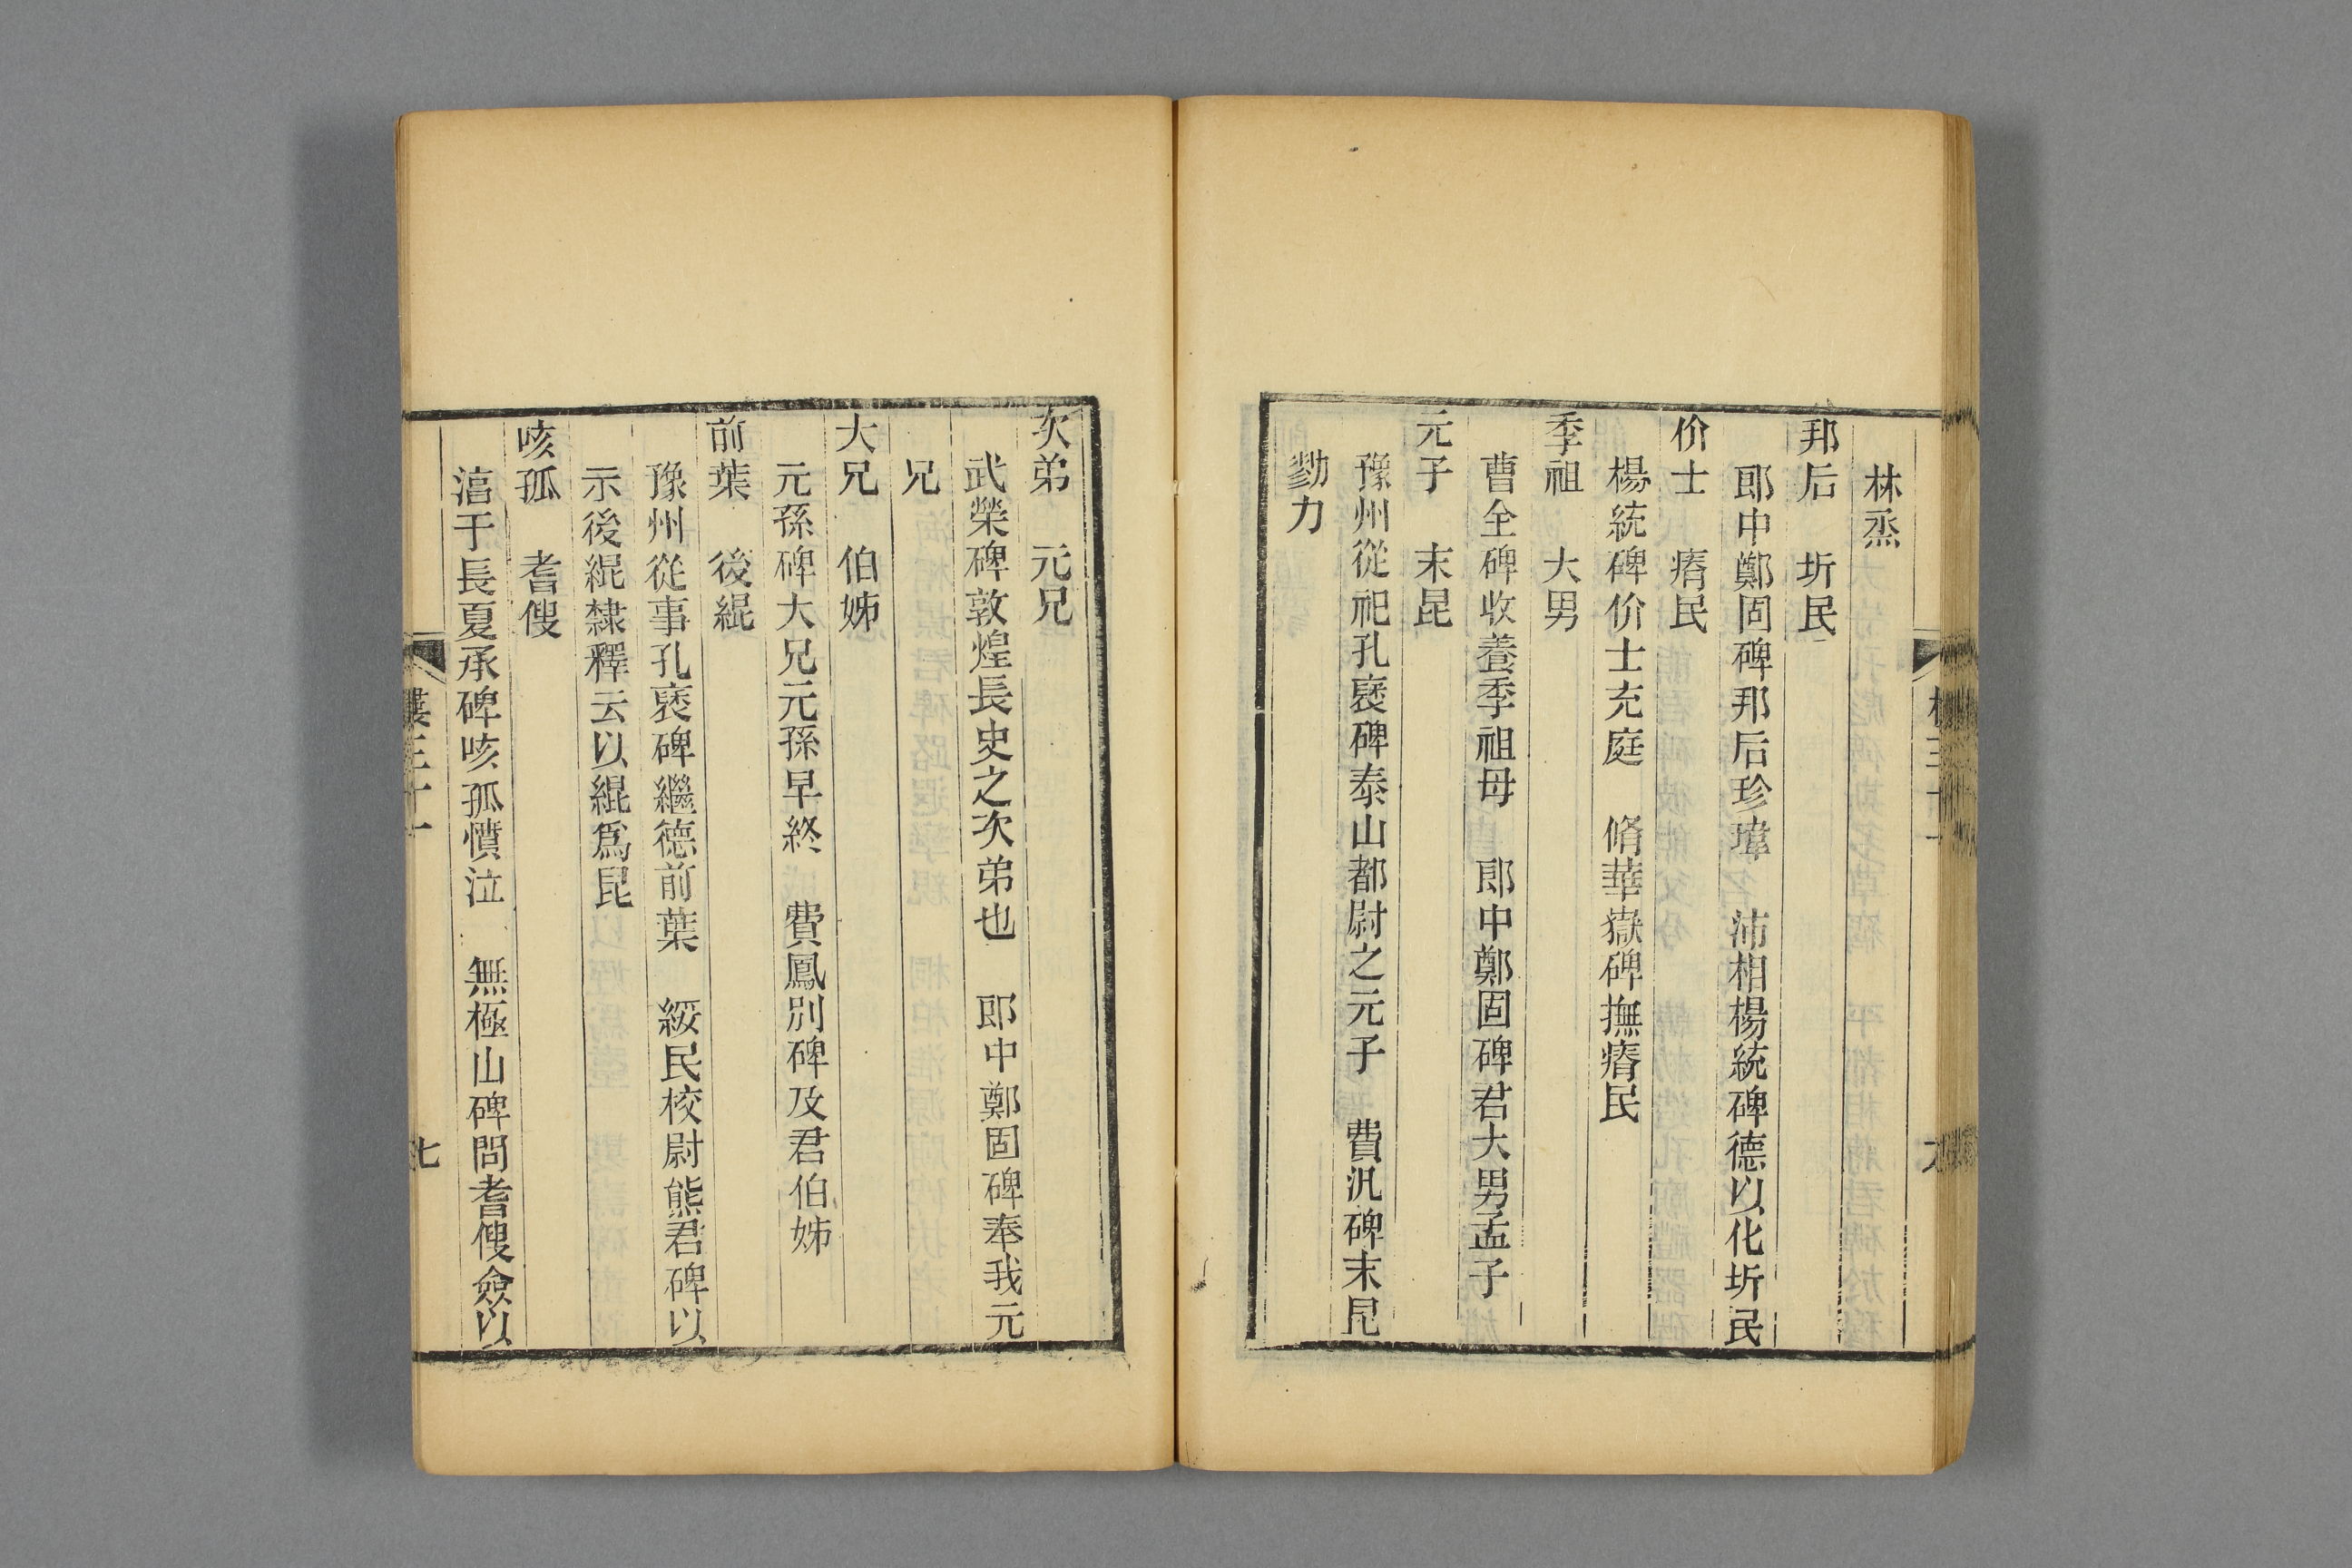 林烝
邦后　圻民
郎中鄭固碑邦后珍瑋　沛相楊統碑德以化圻民
价士　瘠民
楊統碑价士充庭　脩華嶽碑撫瘠民
季祖　大男
曹全碑收養季祖母　郎中鄭固碑君大男孟子
元子　末昆
豫州從祀孔襃碑泰山都尉之元子　費汎碑末昆
勠力
次弟　元兄
武榮碑敦煌長史之次弟也　郎中鄭固碑奉我元
兄
大兄　伯姊
元孫碑大兄元孫早終　費鳳別碑及君伯姊
前葉　後緄
豫州從事孔襃碑繼德前葉　綏民校尉熊君碑以
示後緄隸釋云以緄爲昆
咳孤　耆傁
湻于長夏承碑咳孤憤泣　無極山碑問耆傁僉以
三十一
七